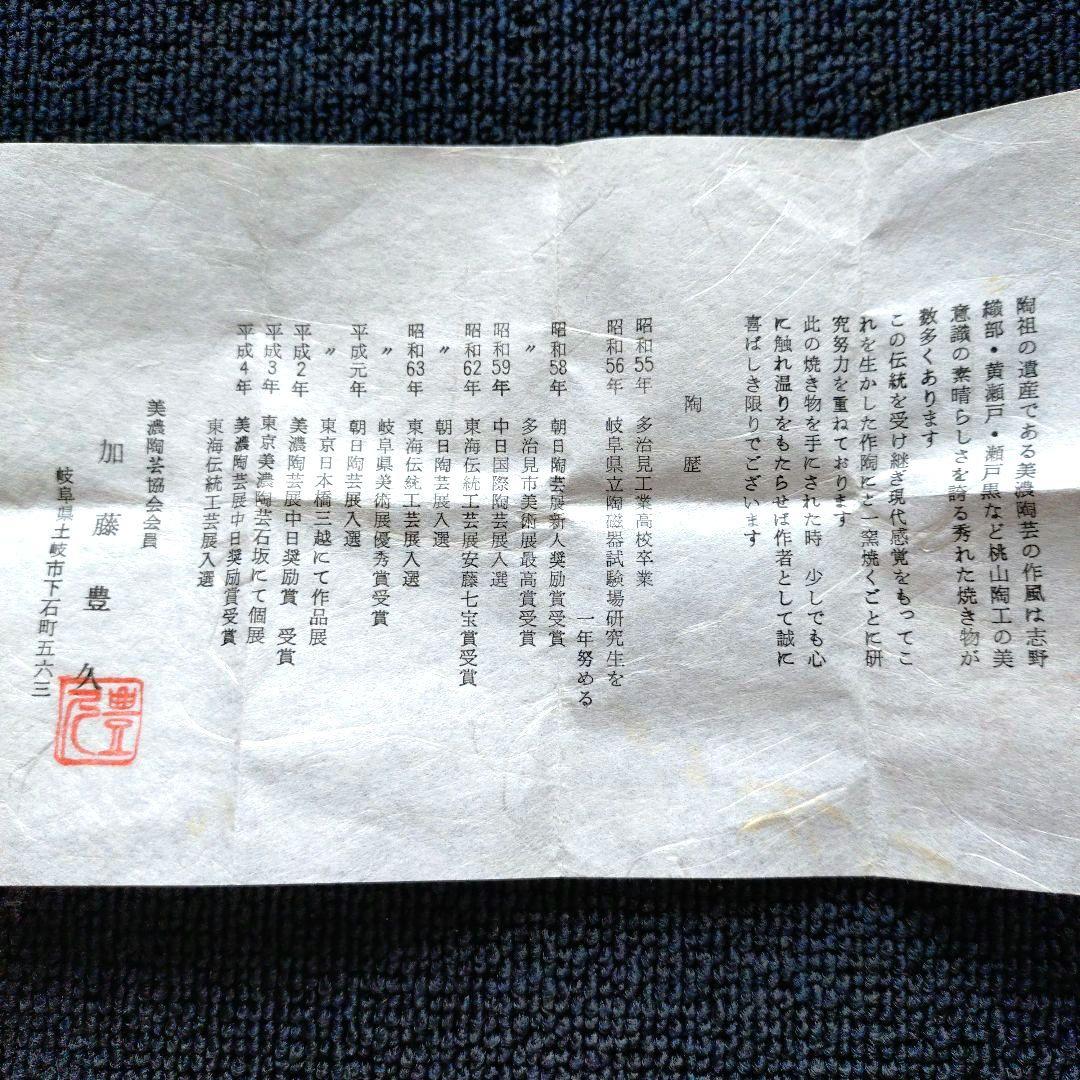 陶祖の遺産である美濃陶芸の作風は志野
織部・黄瀬戸・瀬戸黒など桃山陶工の美
意識の素晴らしさを誇る秀れた焼き物が
数多くあります
この伝統を受け継ぎ現代感覚をもってこ
れを生かした作陶にと一窯焼くごとに研
究努力を重ねております
此の焼き物を手にされた時 少しでも心
に触れ温りをもたらせば作者として誠に
喜ばしき限りでございます
陶歴
昭和55年 多治見工業高校卒業
昭和56年 岐阜県立陶磁器試験場研究生を
一年努める
昭和58年 朝日陶芸展新人奨励賞受賞
〃 多治見市美術展最高賞受賞
昭和59年 中日国際陶芸展入選
昭和62年 東海伝統工芸展安藤七宝賞受賞
〃 朝日陶芸展入選
昭和63年 東海伝統工芸展入選
〃 岐阜県美術展優秀賞受賞
平成元年 朝日陶芸展入選
〃 東京日本橋三越にて作品展
平成2年 美濃陶芸展中日奨励賞 受賞
平成3年 東京美濃陶芸石坂にて個展
平成4年 美濃陶芸展中日奨励賞受賞
東海伝統工芸展入選
美濃陶芸協会会員
加藤豊久
岐阜県土岐市下石町五六三
豊久